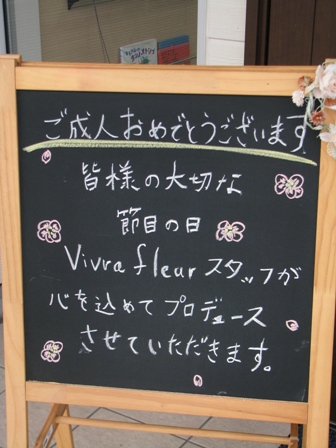 ご成人おめでとうございます
皆様の大切な
節目の日
Vivra fleur スタッフが
心を込めてプロデュース
させていただきます。